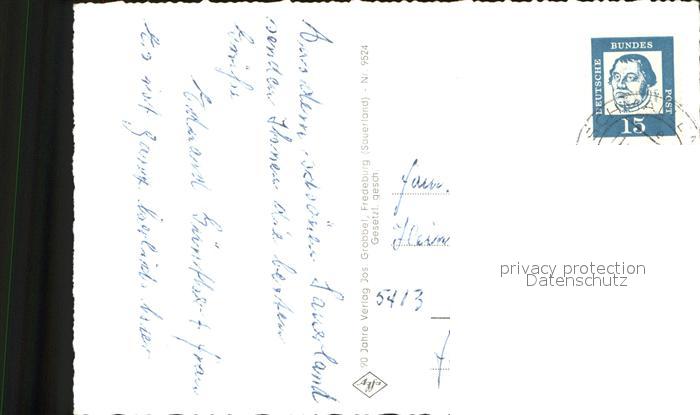 Aus dem schönen Sauerland
senden Ihnen die besten
Grüße
Eduard Günther + Frau
Es ist ganz herrlich hier
90 Jahre Verlag Jos. Grobbel, Fredeburg (Sauerland) - Nr. 9524
Gesetzl. gesch.
DEUTSCHE
BUNDES
POST
15
Fam.
Heim
5413
privacy protection
Datenschutz